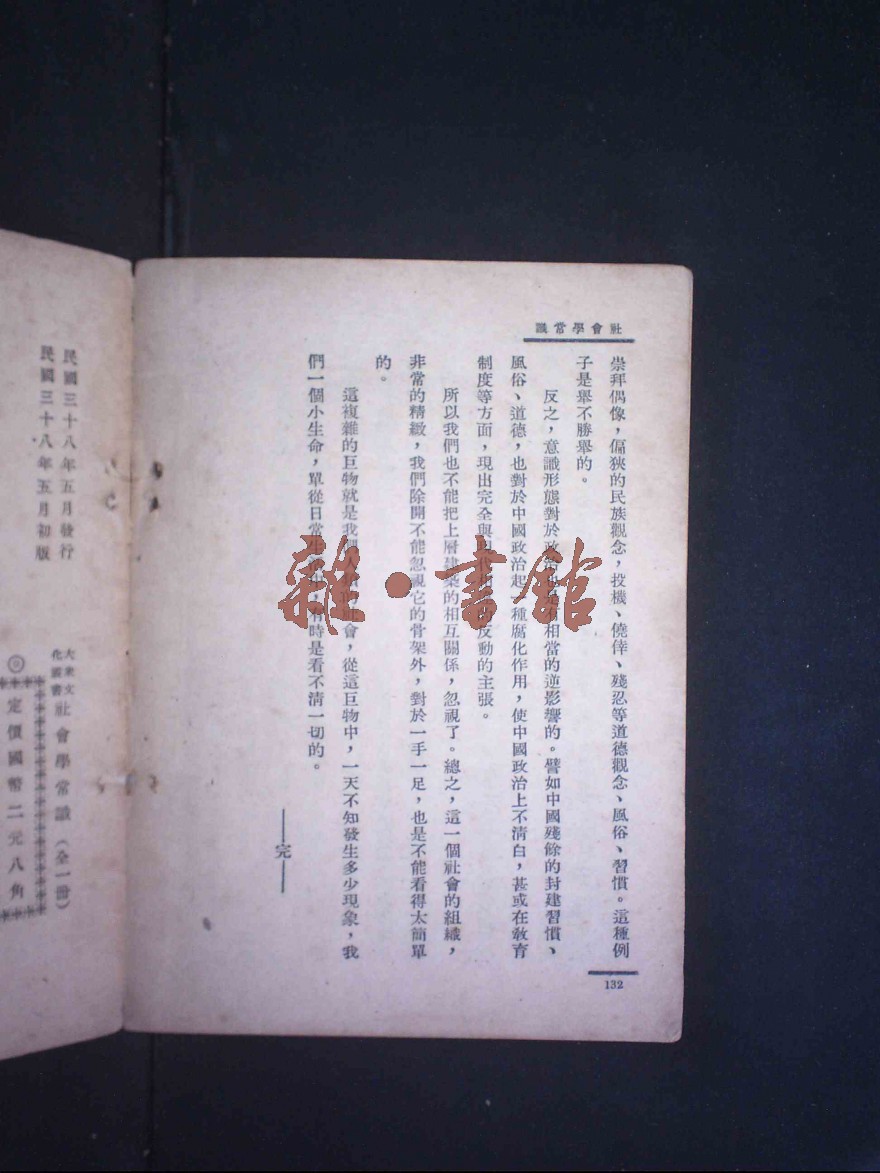 社會學常識
崇拜偶像，偏狹的民族觀念，投機、僥倖、殘忍等道德觀念、風俗、習慣。這種例
子是舉不勝舉的。
反之，意識形態對於政治也是有相當的逆影響的。譬如中國殘餘的封建習慣、
風俗、道德，也對於中國政治起一種腐化作用，使中國政治上不清白，甚或在教育
制度等方面，現出完全與 反動的主張。
所以我們也不能把上層建築的相互關係，忽視了。總之，這一個社會的組織，
非常的精緻，我們除開不能忽視它的骨架外，對於一手一足，也是不能看得太簡單
的。
這複雜的巨物就是我們人類的社會，從這巨物中，一天不知發生多少現象，我
們一個小生命，單從日常生活中，有時是看不清一切的。
——完——
132
雜·書館
民國三十八年五月發行
民國三十八年五月初版
大衆文化叢書
社會學常識（全一冊）
定價國幣二元八角